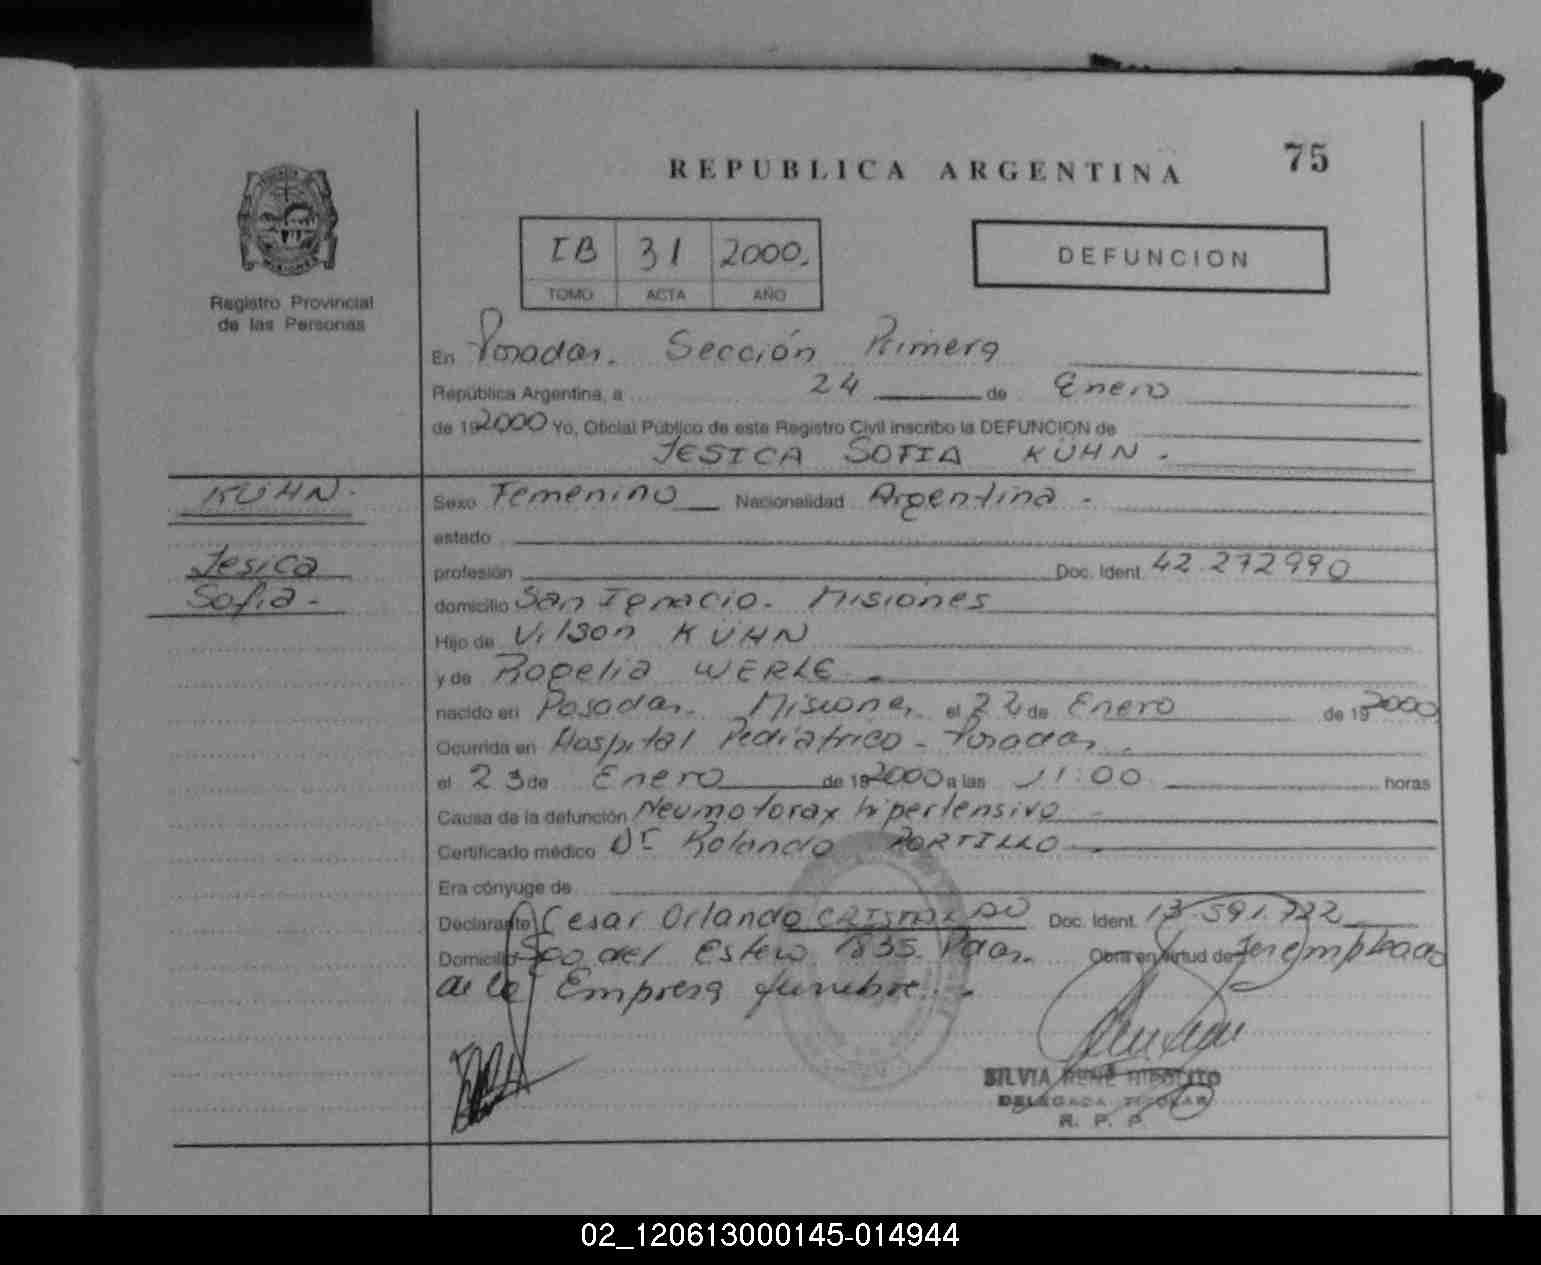 REPUBLICA ARGENTINA
75
Registro Provincial
de las Personas
IB 31 2000.
TOMO ACTA AÑO
DEFUNCION
En Posadas. Sección Primera
República Argentina, a 24 de Enero
de 192000 Yo, Oficial Público de este Registro Civil inscribo la DEFUNCION de
JESICA SOFIA KÜHN.
KÜHN.
Jesica
Sofia.-
Sexo Femenino Nacionalidad Argentina.
estado
profesión Doc. Ident. 42.272990
domicilio San Ignacio. Misiones
Hijo de Vilson KÜHN
y de Rogelia WERLE.
nacido en Posadas. Misiones, el 22 de Enero de 192000
Ocurrida en Hospital Pediatrico - Posadas.
el 23 de Enero de 192000 a las 11:00 horas
Causa de la defunción Neumotorax hipertensivo
Certificado médico Dr Rolando PORTILLO
Era cónyuge de
Declarante Cesar Orlando Doc. Ident. 13.591.722
Domicilio Sgo del Estero 1835. Pdas. Obra en virtud de Ser empleado
de la Empresa funebre.
SILVIA RENE HIPOLITO
DELEGADA TITULAR
R. P. P.
02_120613000145-014944